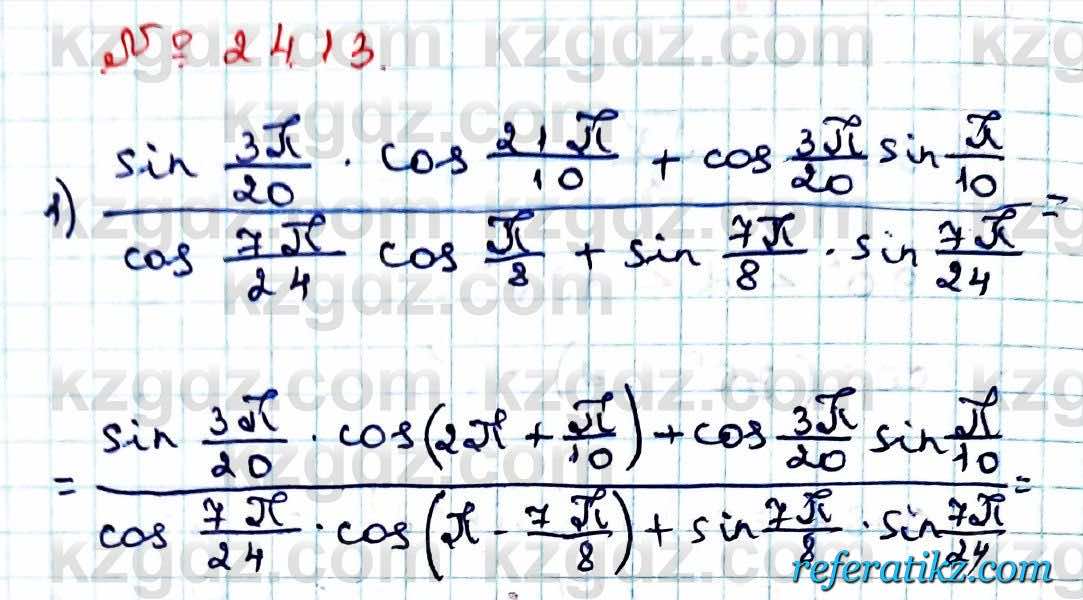 № 2413.
1) (sin 3π/20 · cos 21π/10 + cos 3π/20 sin π/10) / (cos 7π/24 cos π/8 + sin 7π/8 · sin 7π/24) =
= (sin 3π/20 · cos(2π + π/10) + cos 3π/20 sin π/10) / (cos 7π/24 · cos(π - 7π/8) + sin 7π/8 · sin 7π/24) =
kzgdz.com
referatikz.com